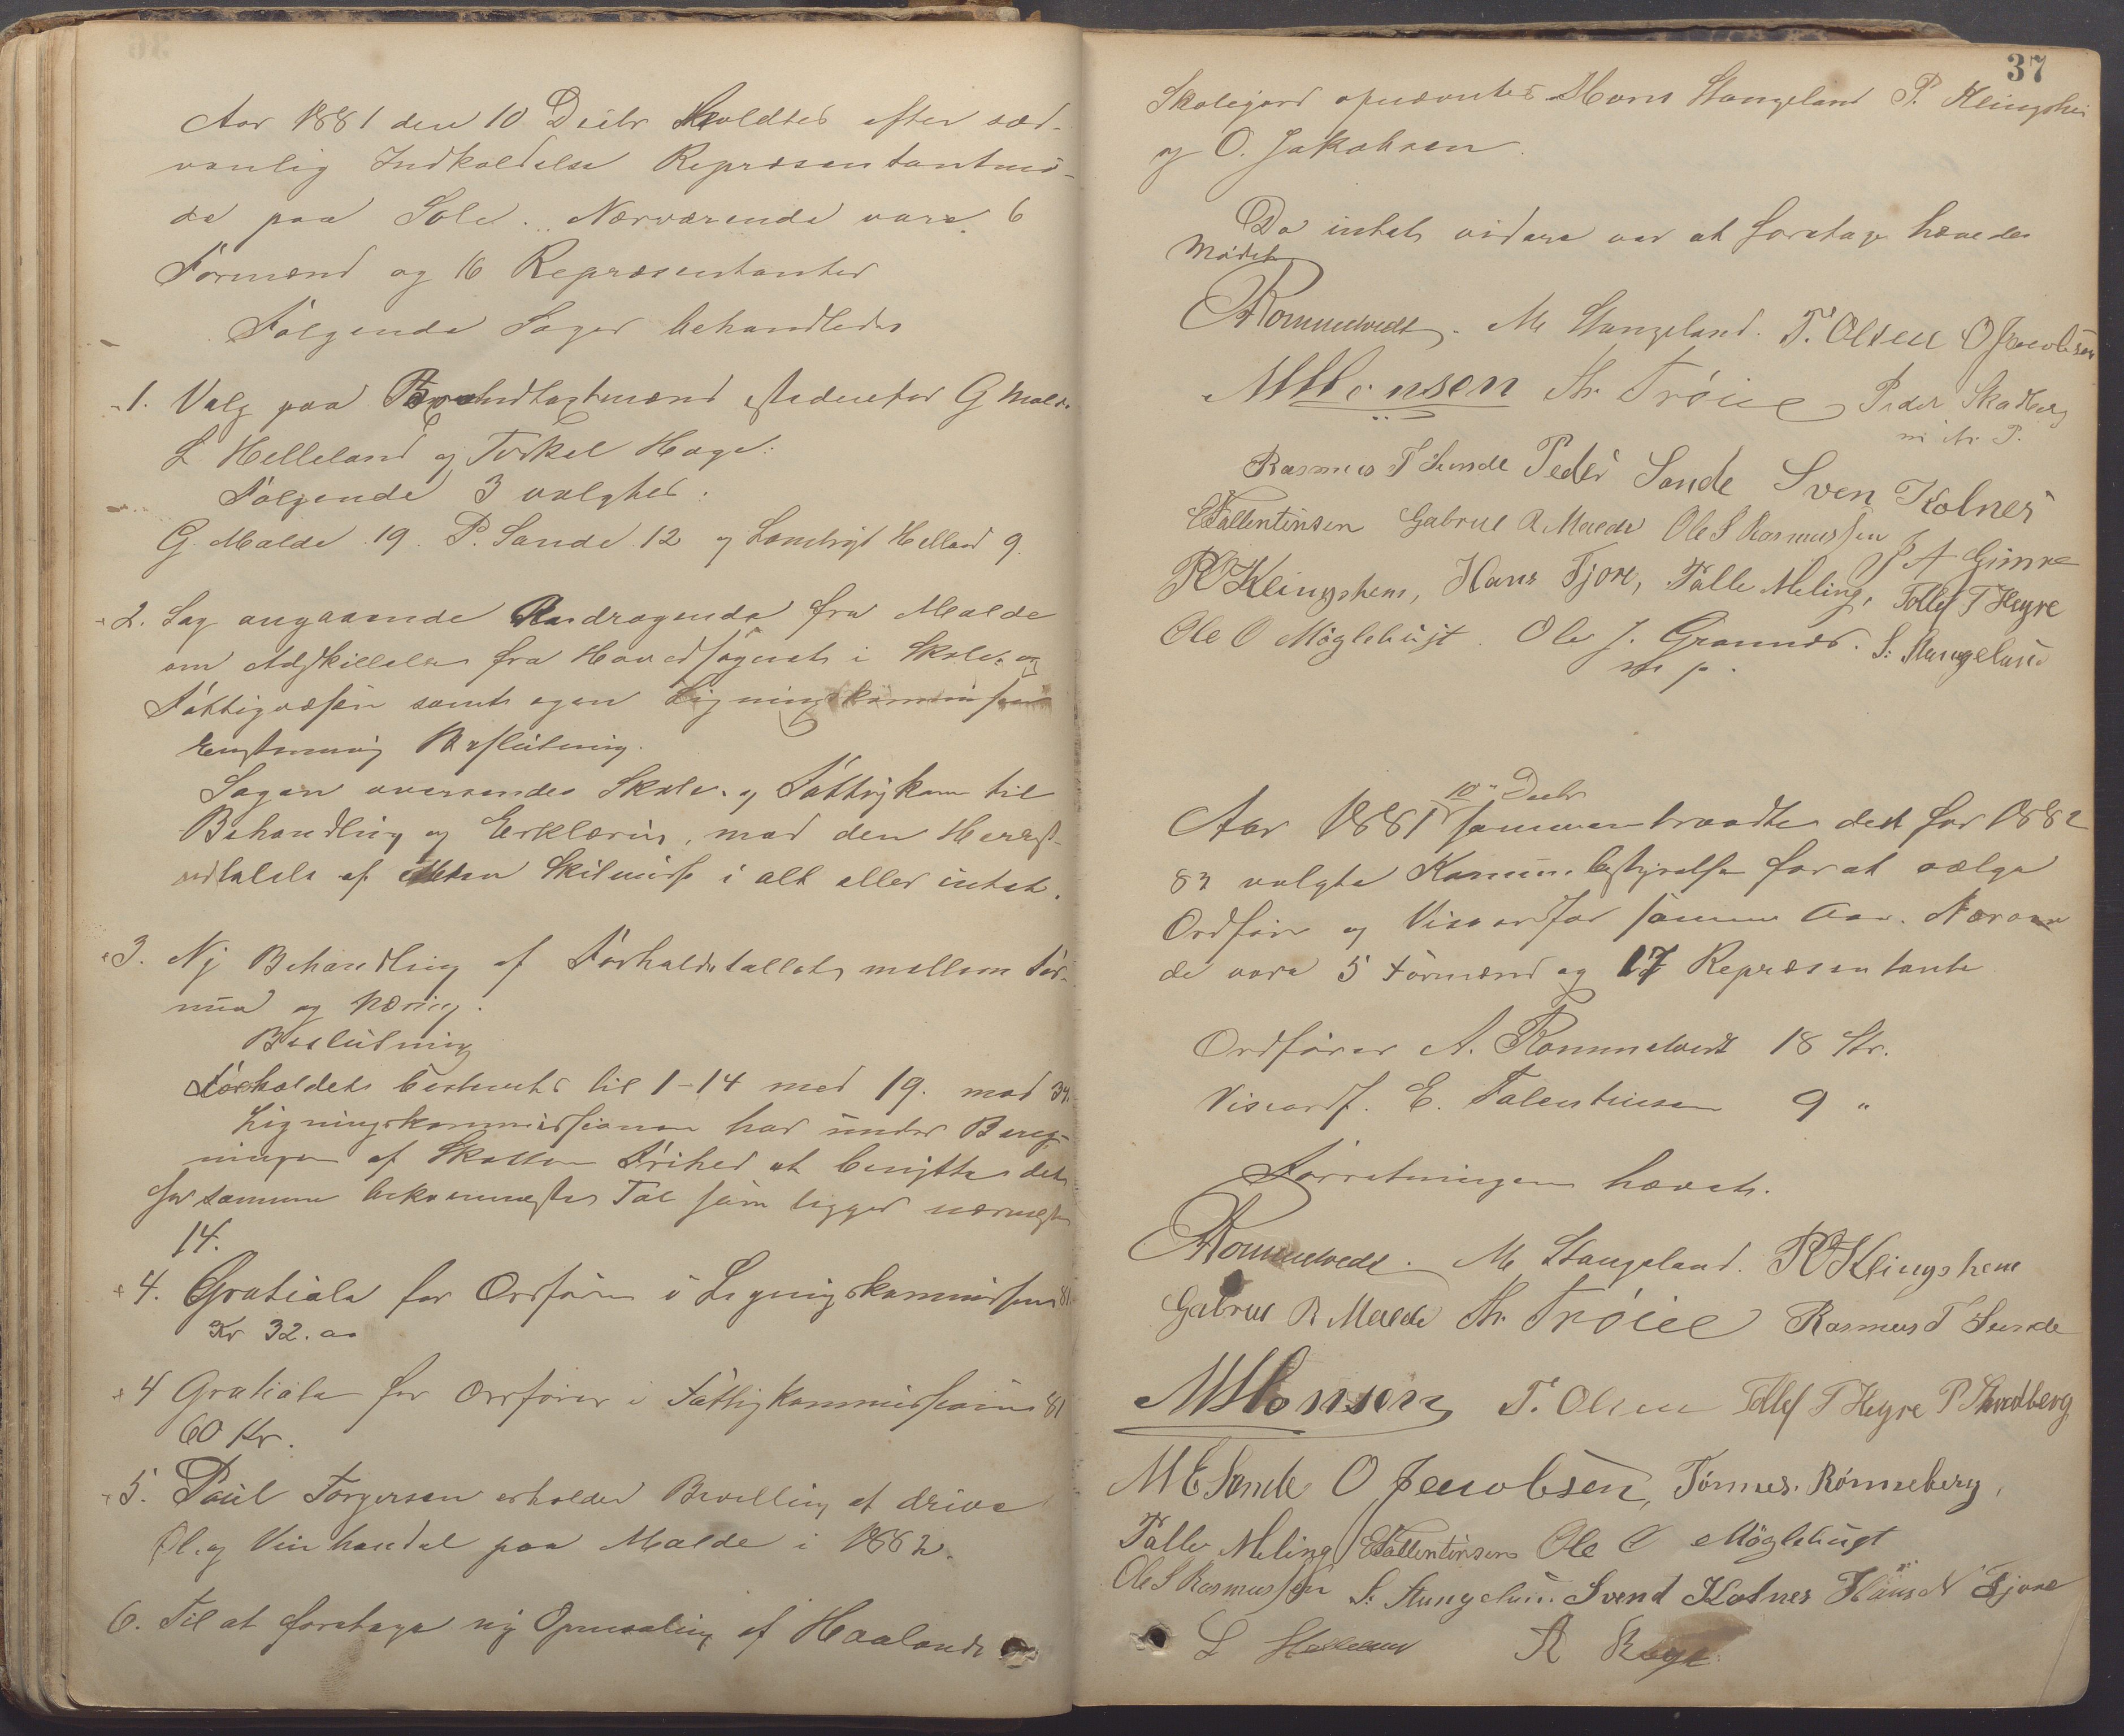 Aar 1881 den 10 Decbr holdtes efter sæd-
vanlig Indkaldelse Repræsentantmö-
de paa Sole. Nærværende vare 6
Formænd og 16 Repræsentanter
Følgende Sager behandledes
1. Valg paa Brandtaxtmænd istedenfor G Malde
L Helleland og Torkel Haga.
Følgende 3 valgtes:
G. Malde 19. P. Sande 12 og Helland 9.
2. Sag angaaende Andragende fra Malde
om Adskillelse fra Hovedsognet i Skole- og
Fattigvæsen samt egen Ligningskommission
Enstemmig Beslutning.
Sagen oversendes Skole- og Fattigkom til
Behandling og Erklæring, med den
udtalelse af Skilmisse i alt eller intet.
3. Ny Behandling af Forholdstallet mellem For-
mue og Næring.
Beslutning
Forholdet bestemtes til 1-14 med 19. mod 3
Ligningskommissionen har under Bereg-
ningen af Skatten Frihed at benytte det
for samme bekvemmeste Tal som ligger nærmest
14.
4. Gratiale for Ordförer i Ligningskommissionen 81
Kr 32.00
4 Gratiale for Ordförer i Fattigkommissionen 81
60 Kr.
5. Paul Torgersen erholder Bevilling at drive
Öl og Vinhandel paa Malde i 1882.
6. Til at foretage ny Opmaaling af Haalands
37
Skolejord opnævntes Mons Stangeland P. Klingshei
og O. Jakobsen.
Da intet videre var at foretage hævedes
Mödet
A Rommetvedt. M Stangeland. T. Olsen O Jacobsen
M Monsen Th. Tröie Peder Skadberg
m. st. P.
Rasmus T Sunde Peder Sande Sven Kolnes
E Fallentinsen Gabriel R Malde Ole S Rasmussen J A Gimre
P Klingshem, Hans Fjore, Talle Meling, Tollef T Heyre
Ole O Möglebust. Ole J. Grannes. S. Stangeland
m p.
10de Decbr
Aar 1881 sammentraadte det for 1882
83 valgte Kommunebestyrelse for at vælge
Ordförer og Viseordför samme Aar. Næroæren
de vare 5 Formænd og 17 Repræsentante
Ordförer A. Rommetvedt 18 St.
Viseordf. E. Falentinsen 9 "
Forretningen hævet.
A Rommetvedt. M Stangeland. P Klingshem
Gabriel R Malde Th. Tröie Rasmus T Sunde
M Monsen T. Olsen Tollef T Heyre P Skadberg
M E Sande O Jacobsen, Tönnes. Rönneberg,
Talle Meling E Fallentinsen Ole O Möglebust
Ole S Rasmussen S. Stangeland. Svend Kolnes Hans N Fjore
L Helleland A Rege